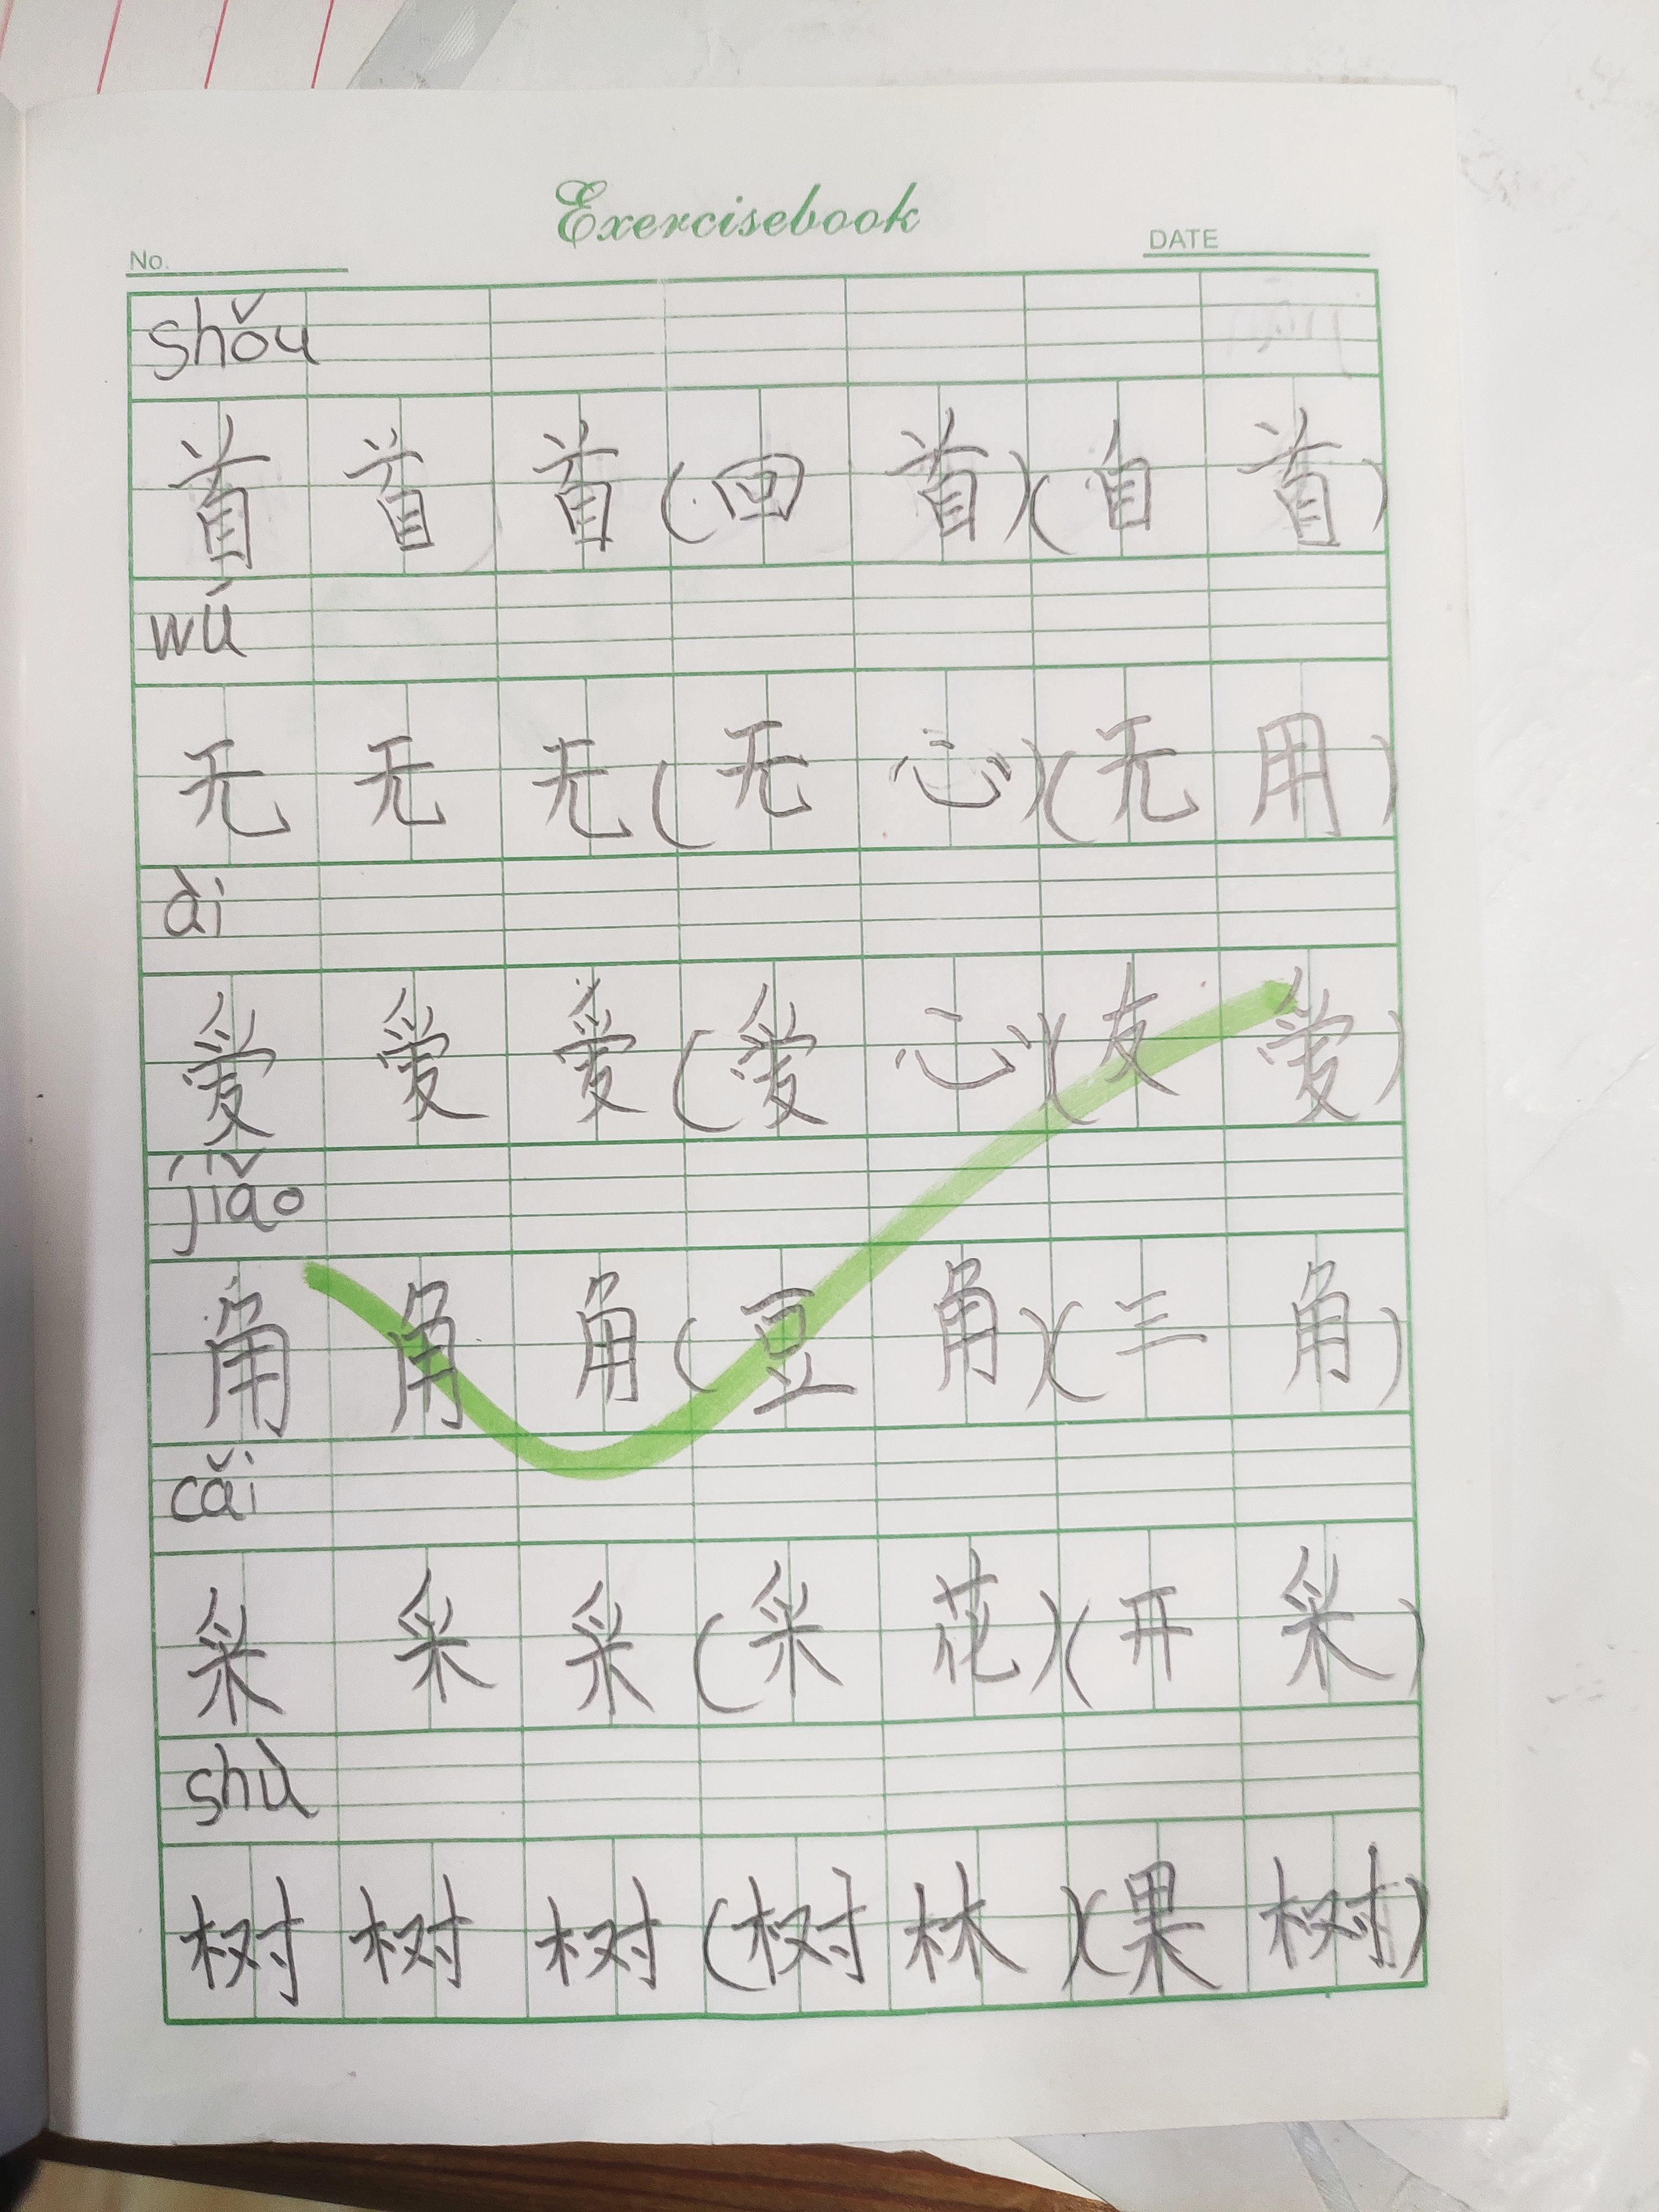 Exercisebook
No. DATE
shǒu
首 首 首 (回 首)(自 首)
wú
无 无 无 (无 心)(无 用)
ài
爱 爱 爱 (爱 心)(友 爱)
jiǎo
角 角 角 (豆 角)(三 角)
cǎi
采 采 采 (采 花)(开 采)
shù
树 树 树 (树 林)(果 树)